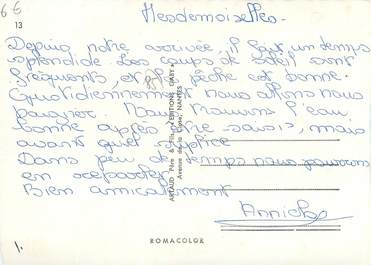 6€
13
Mesdemoiselles -
Depuis notre arrivée, il fait un temps
splendide. Les coups de soleil sont
fréquents et la pêche est bonne.
Quotidiennement nous allons nous
baigner. Nous trouvons l'eau
bonne après être mais
avant quel supplice
Dans peu de temps nous pourrons
en reparler.
Bien amicalement
Annick
ARTAUD Père & Fils ÉDITIONS GABY
Avenue de la NANTES
ROMACOLOR
1.